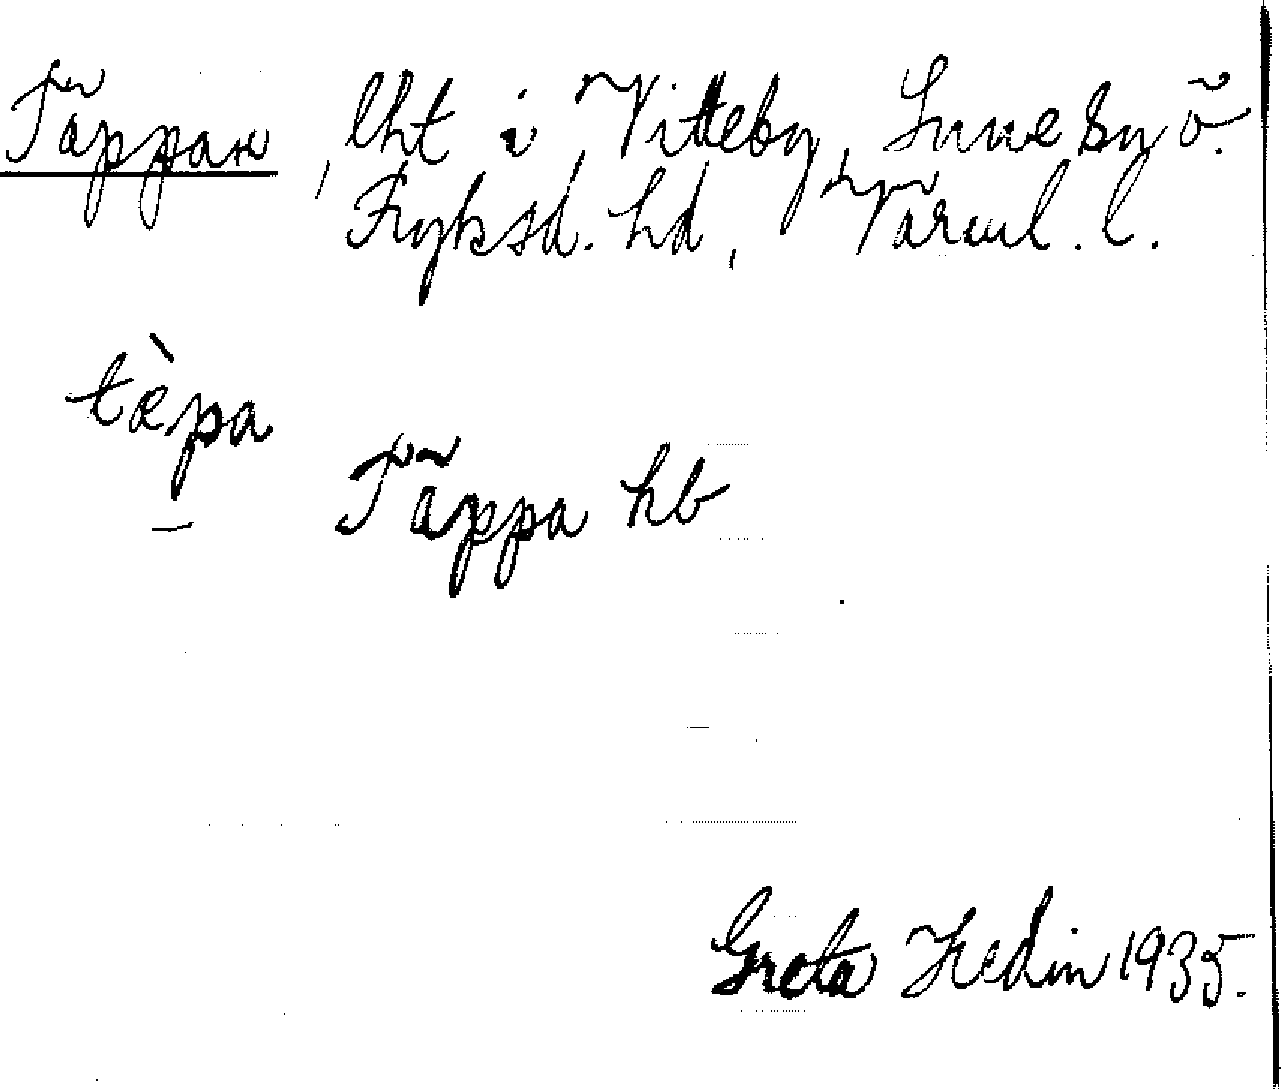 Täppan, lht i Vitteby, Sunne sn ö.
Fryksd. hd, Värml. l.
tæ̀pa
Täppa hb
Greta Hedin 1935.